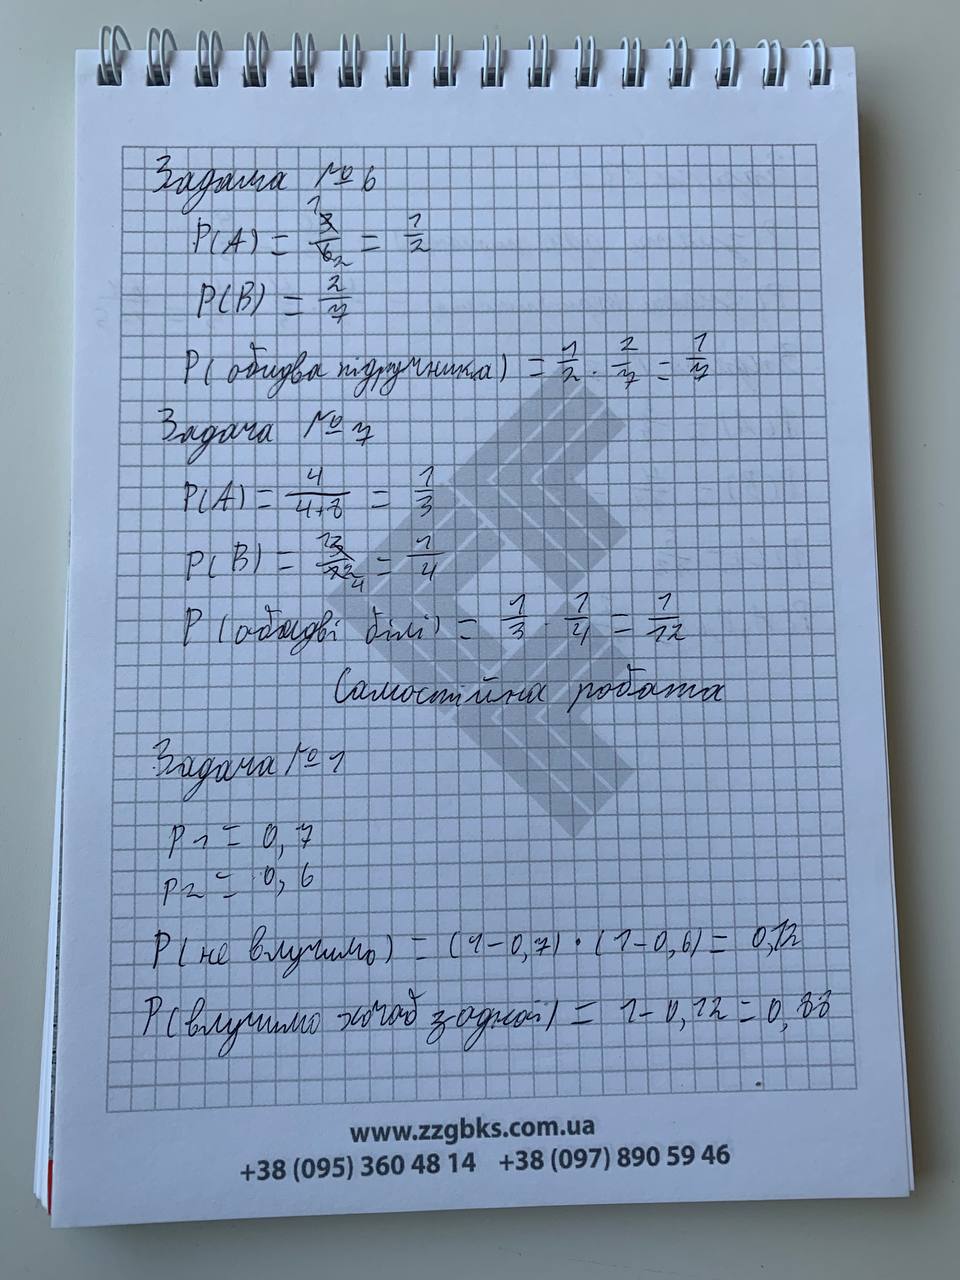 Задача № 6
P(A) = 3/6 = 1/2
P(B) = 2/7
P(обидва підручника) = 1/2 · 2/7 = 1/7
Задача № 7
P(A) = 4/4+8 = 1/3
P(B) = 3/12 = 1/4
P(обидві білі) = 1/3 · 1/4 = 1/12
Самостійна робота
Задача № 1
P1 = 0,7
P2 = 0,6
P(не влучимо) = (1-0,7) · (1-0,6) = 0,12
P(влучимо хочаб з одной) = 1-0,12 = 0,88
www.zzgbks.com.ua
+38 (095) 360 48 14 +38 (097) 890 59 46